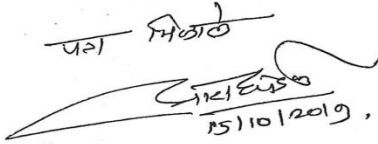 पत्र मिळाले
15/10/2019.